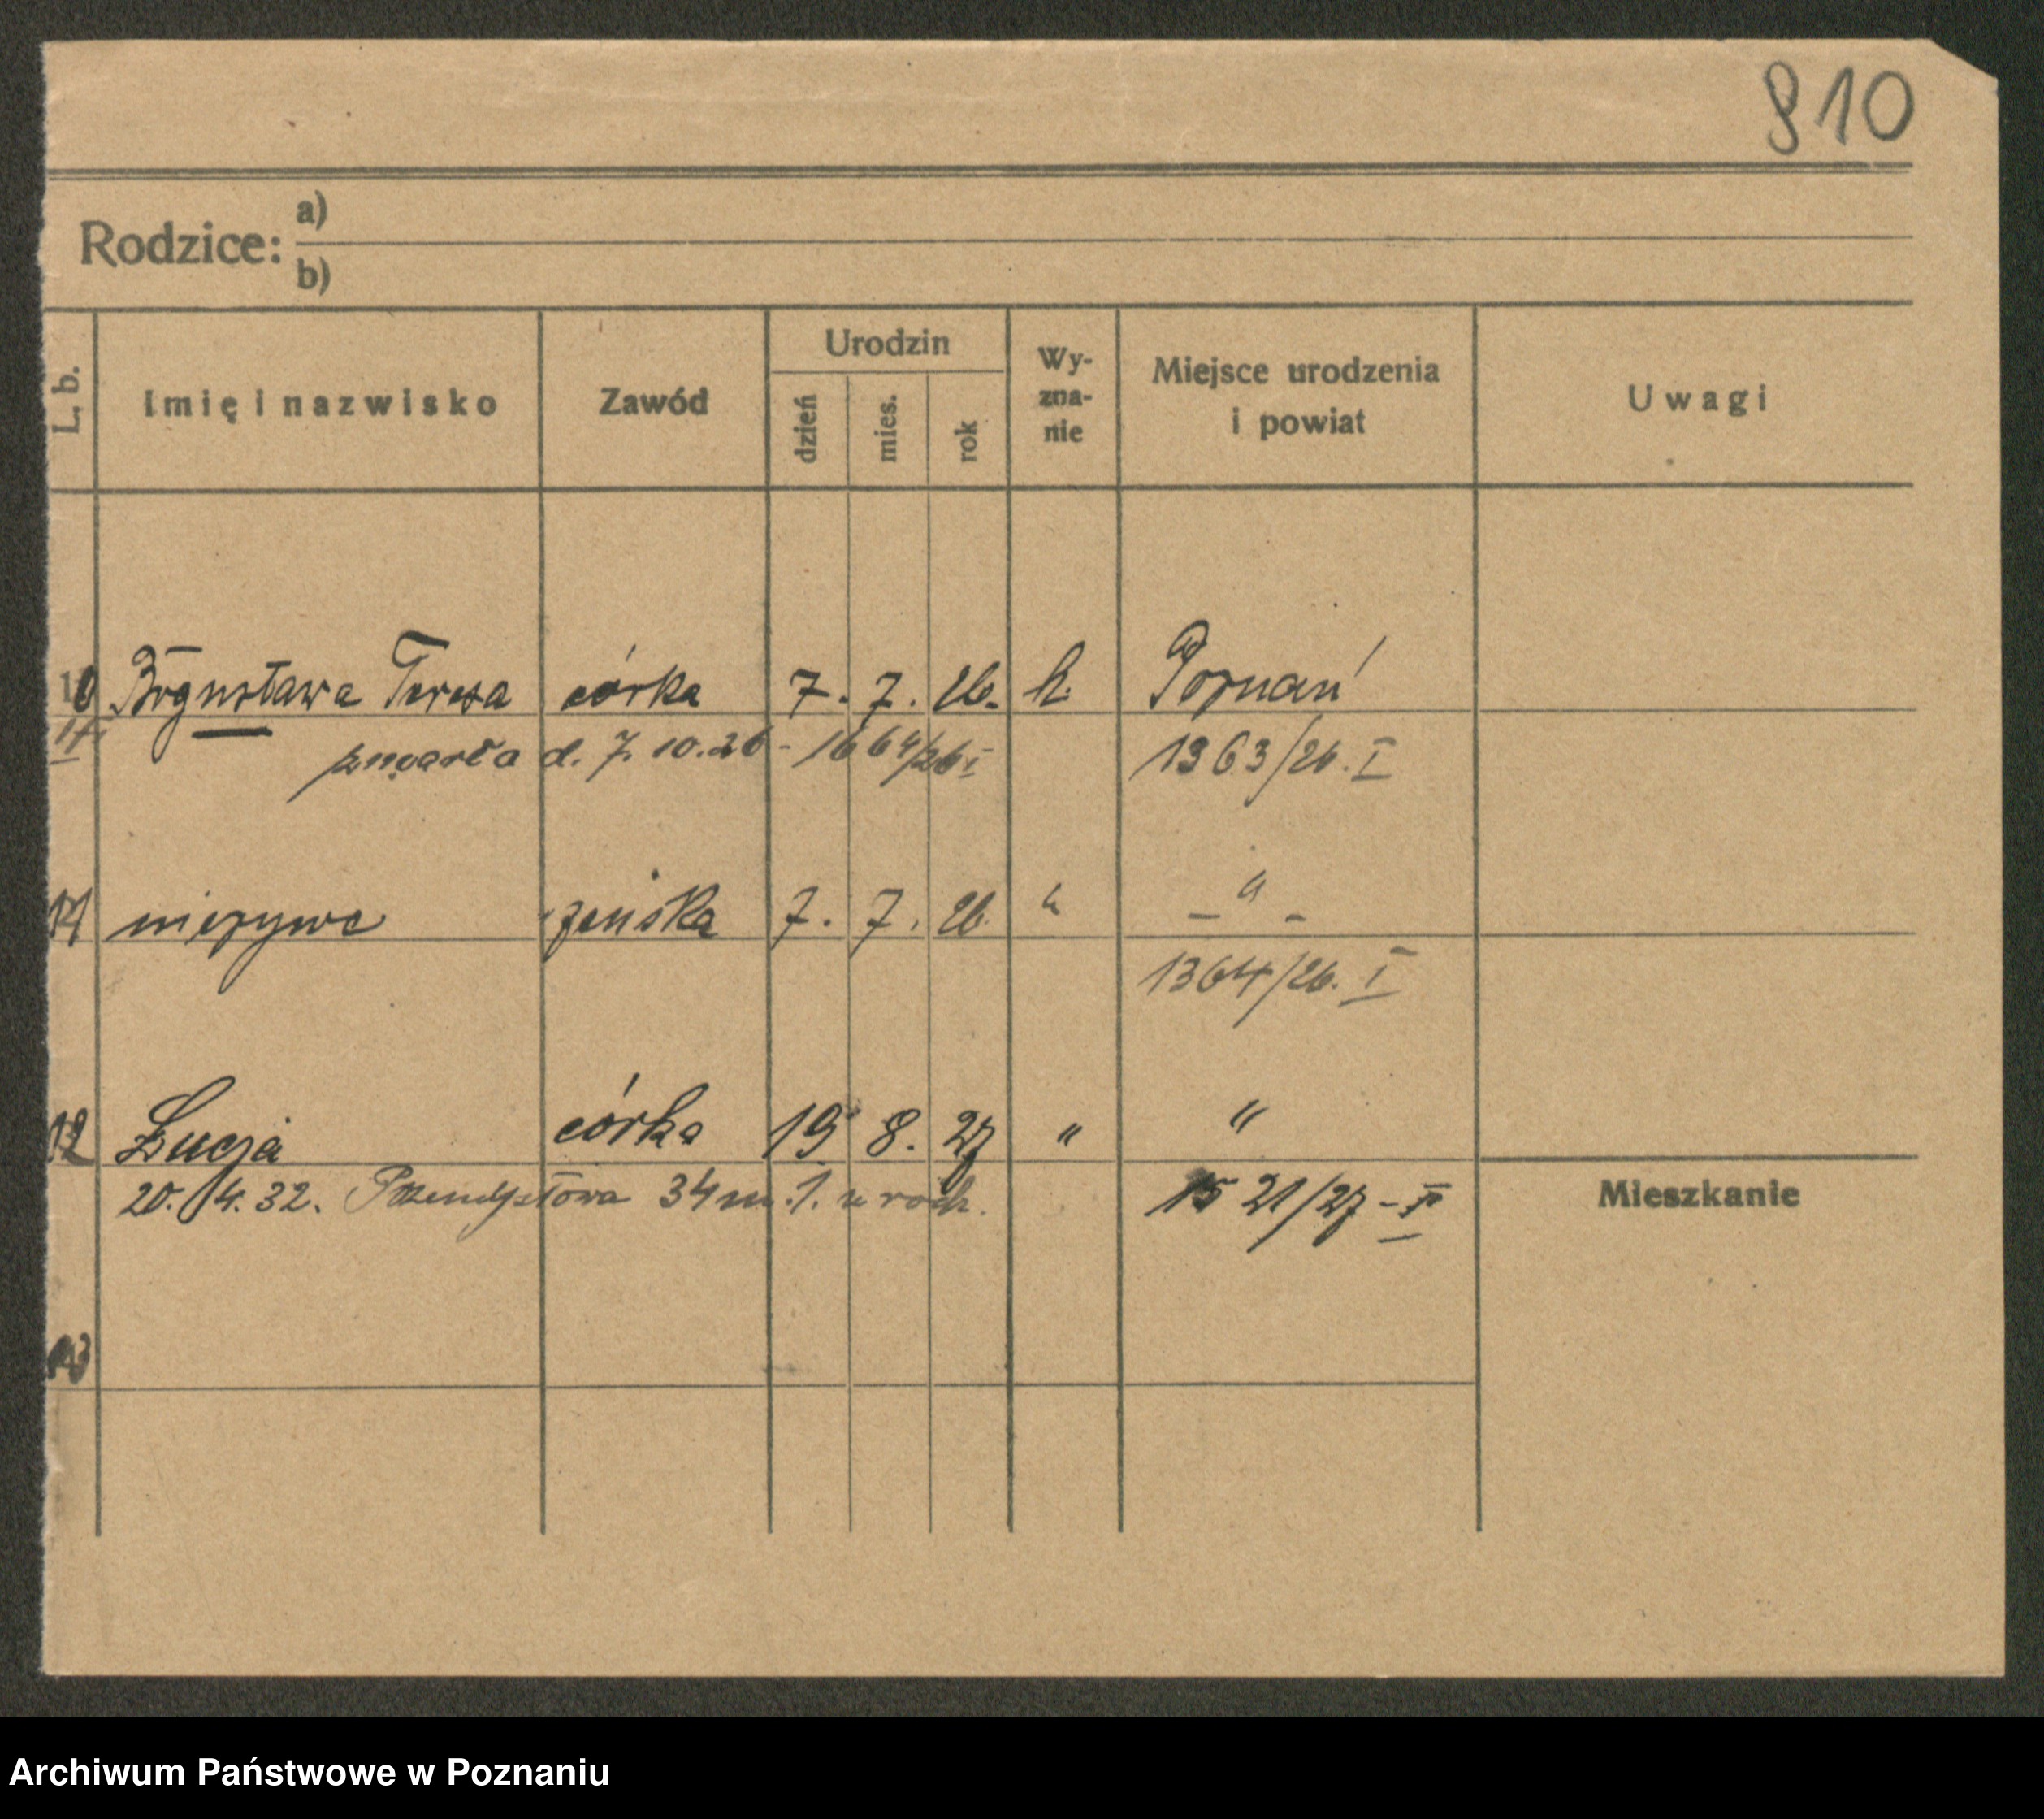 810
Rodzice: a)
b)
L. b. Imię i nazwisko Zawód Urodzin dzień mies. rok Wy-zna-nie Miejsce urodzenia i powiat Uwagi
10 Bogusława Teresa córka 7. 7. 26. k. Poznań
zmarła d. 7. 10. 26 - 1664/26 I 1363/26. I
11 nieżywe żeńska 7. 7. 26. " - " -
1364/26. I
12 Łucja córka 19 8. 27 " "
20. 4. 32. 34 m. 1. u rodz. 1521/27 - I
Mieszkanie
13
Archiwum Państwowe w Poznaniu